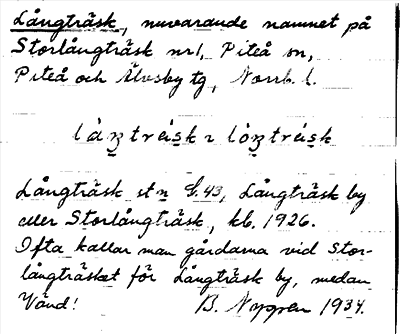 Långträsk, nuvarande namnet på
Storlångträsk nr 1, Piteå sn,
Piteå och Älvsby tg, Norrb. l.
Långträsk stn G. 43, Långträsk by
eller Storlångträsk, kb. 1926.
Ofta kallar man gårdarna vid Stor-
långträsket för Långträsk by, medan
Vänd! B. Nygren 1934.